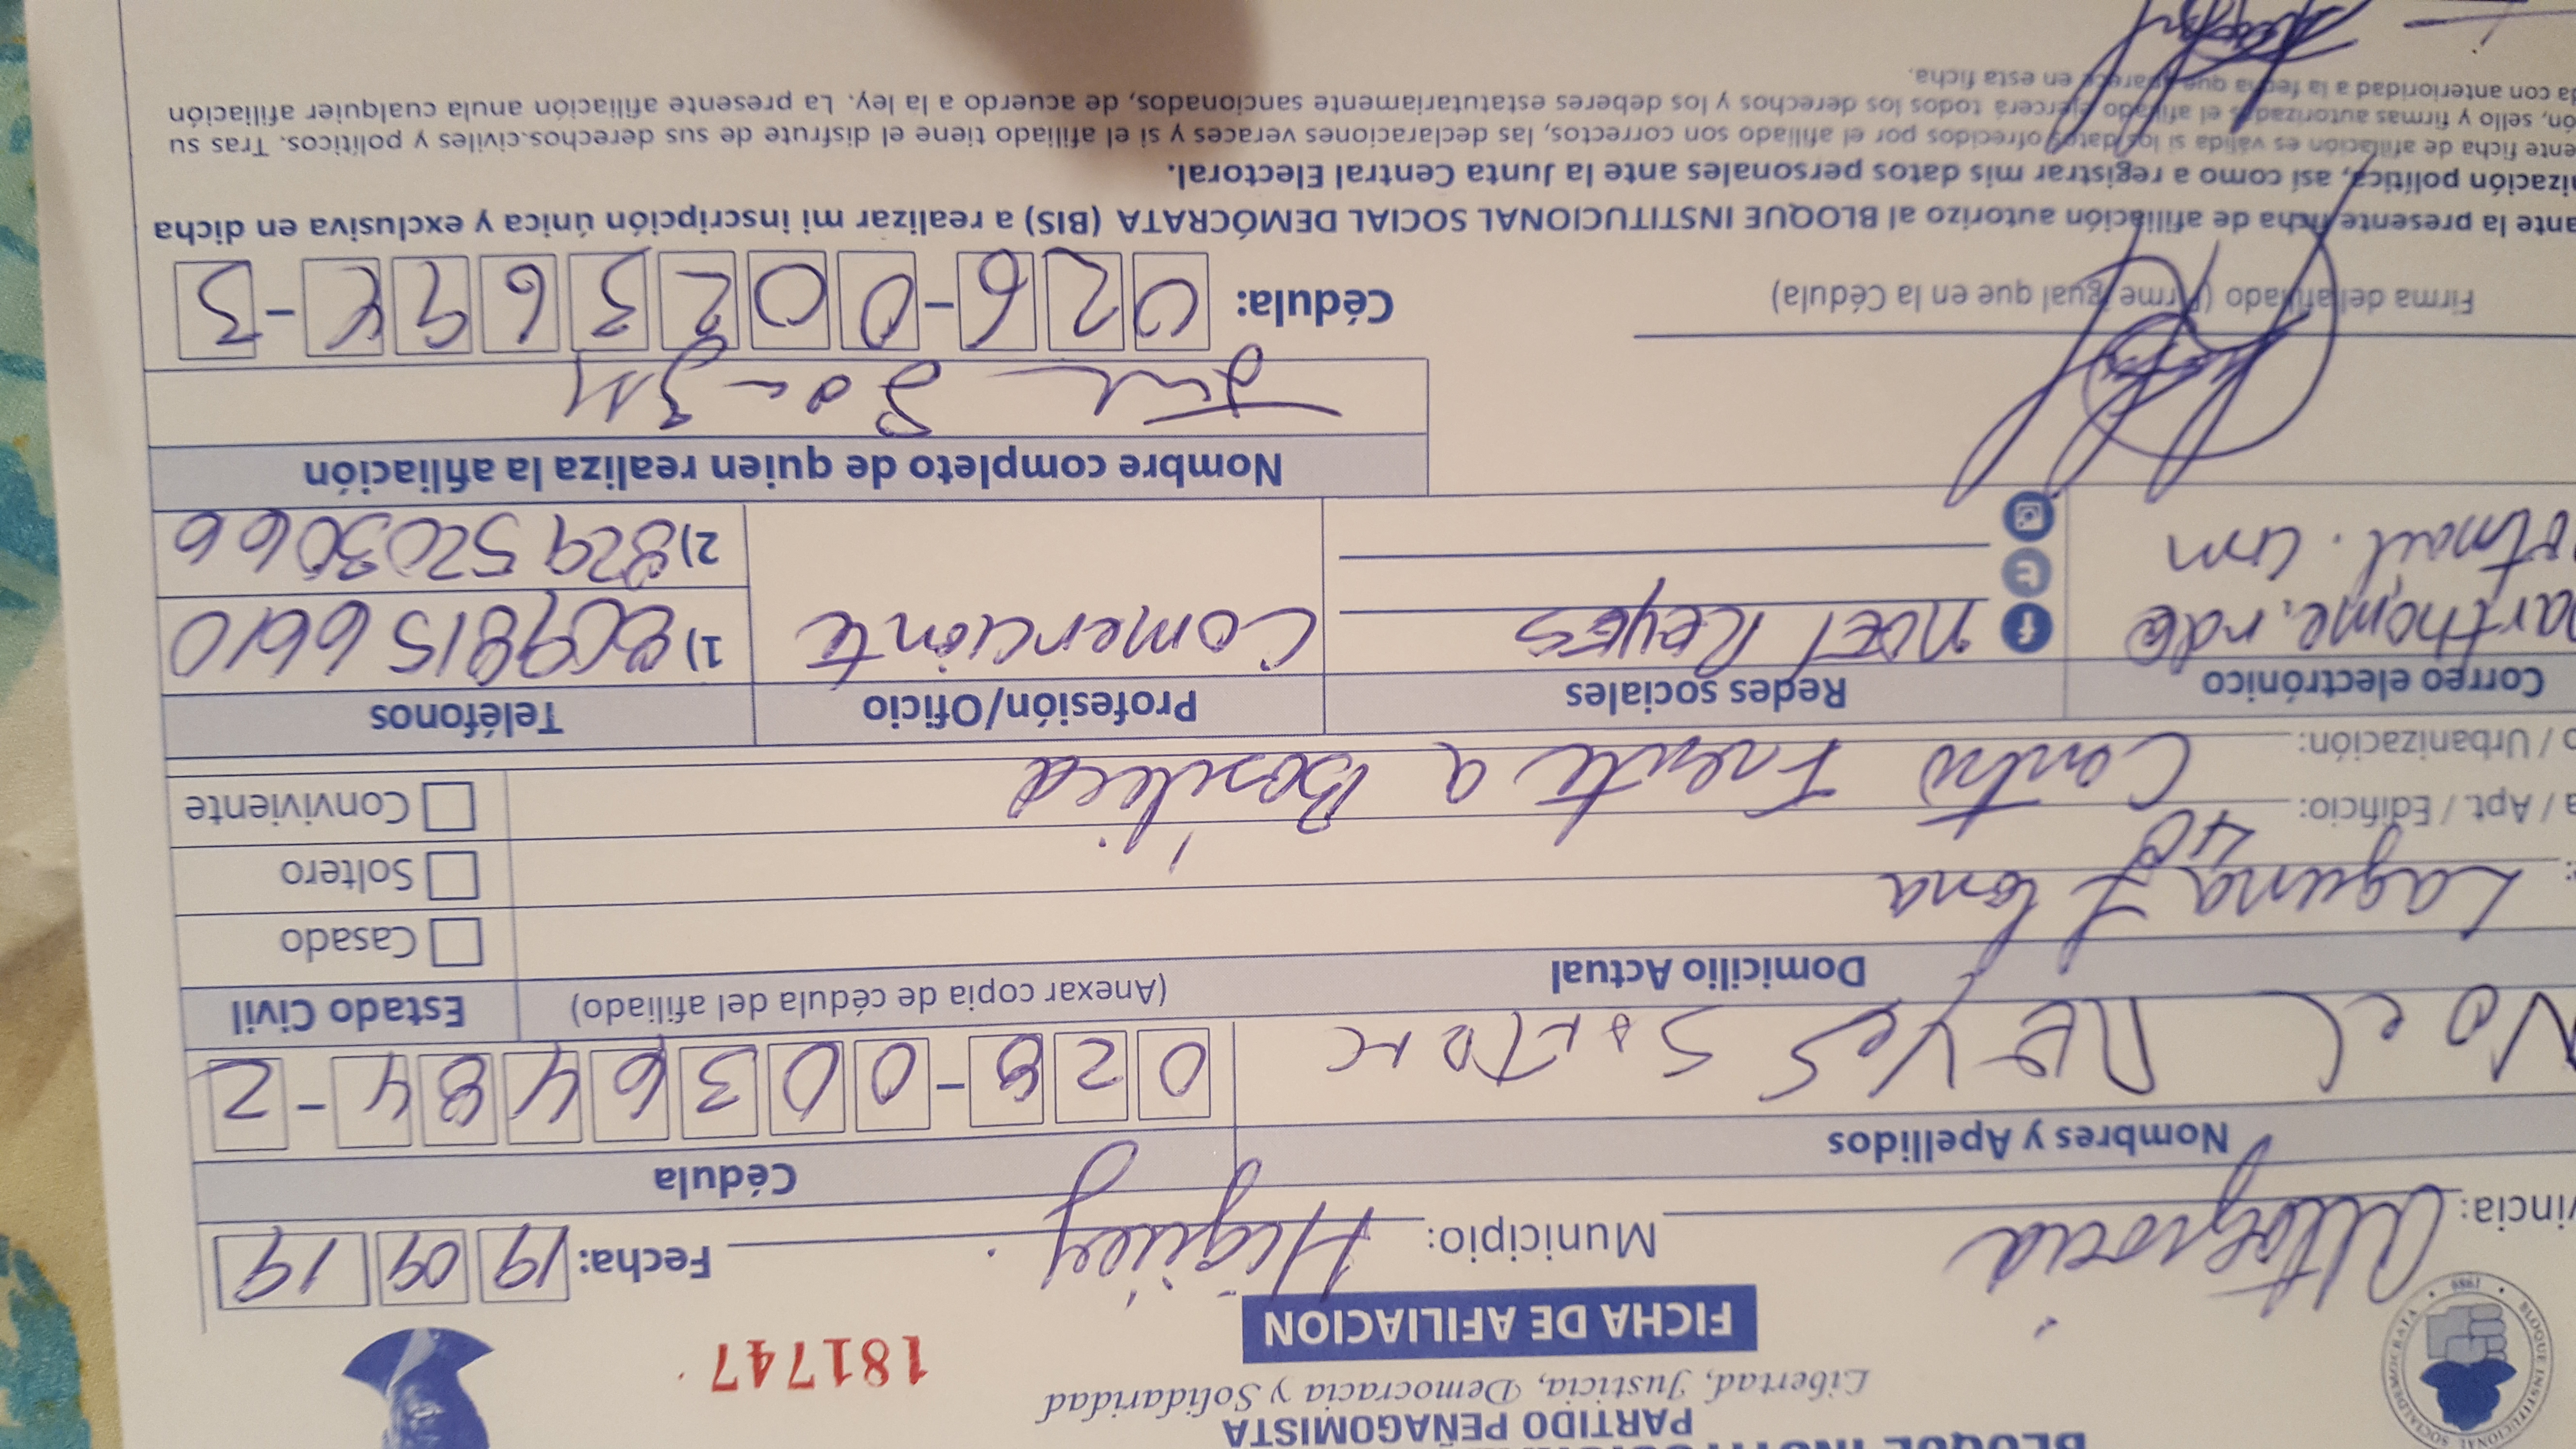 PARTIDO PEÑAGOMISTA
Libertad, Justicia, Democracia y Solidaridad
FICHA DE AFILIACION
181747
BLOQUE INSTITUCIONAL SOCIALDEMOCRATA 1989
vincia: Altagracia Municipio: Higüey Fecha: 19 09 19
Nombres y Apellidos Cédula
Noel Reyes 028-0036484-2
Domicilio Actual (Anexar copia de cédula del afiliado) Estado Civil
Laguna
Casado
a / Apt. / Edificio: 40
Soltero
o / Urbanización: Centro Frente a Basílica
Conviviente
Correo electrónico Redes sociales Profesión/Oficio Teléfonos
arthome.rd@ noel Reyes Comerciante 1) 8098156610
otmail.com 2) 8295203066
Nombre completo de quien realiza la afiliación
Firma del afiliado (Firme igual que en la Cédula)
Cédula: 026-0023694-3
ante la presente ficha de afiliación autorizo al BLOQUE INSTITUCIONAL SOCIAL DEMÓCRATA (BIS) a realizar mi inscripción única y exclusiva en dicha
nización política, así como a registrar mis datos personales ante la Junta Central Electoral.
ente ficha de afiliación es válida si los datos ofrecidos por el afiliado son correctos, las declaraciones veraces y si el afiliado tiene el disfrute de sus derechos.civiles y políticos. Tras su
ón, sello y firmas autorizadas el afiliado ejercerá todos los derechos y los deberes estatutariamente sancionados, de acuerdo a la ley. La presente afiliación anula cualquier afiliación
da con anterioridad a la fecha que aparece en esta ficha.